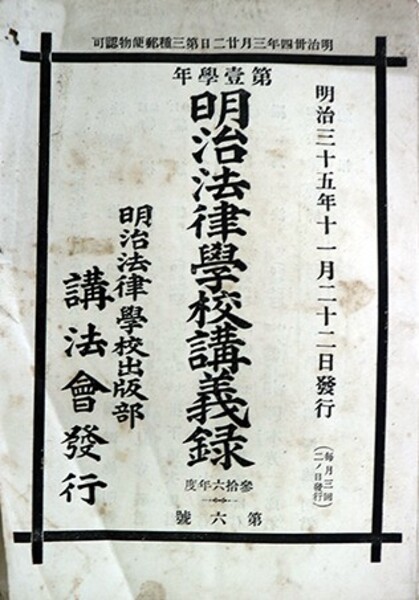 明治卅四年三月廿二日第三種郵便物認可
明治三十五年十一月二十二日發行
(毎月三回
二ノ日發行)
第壹學年
明治法律學校講義録
參拾六年度
第六號
明治法律學校出版部
講法會發行